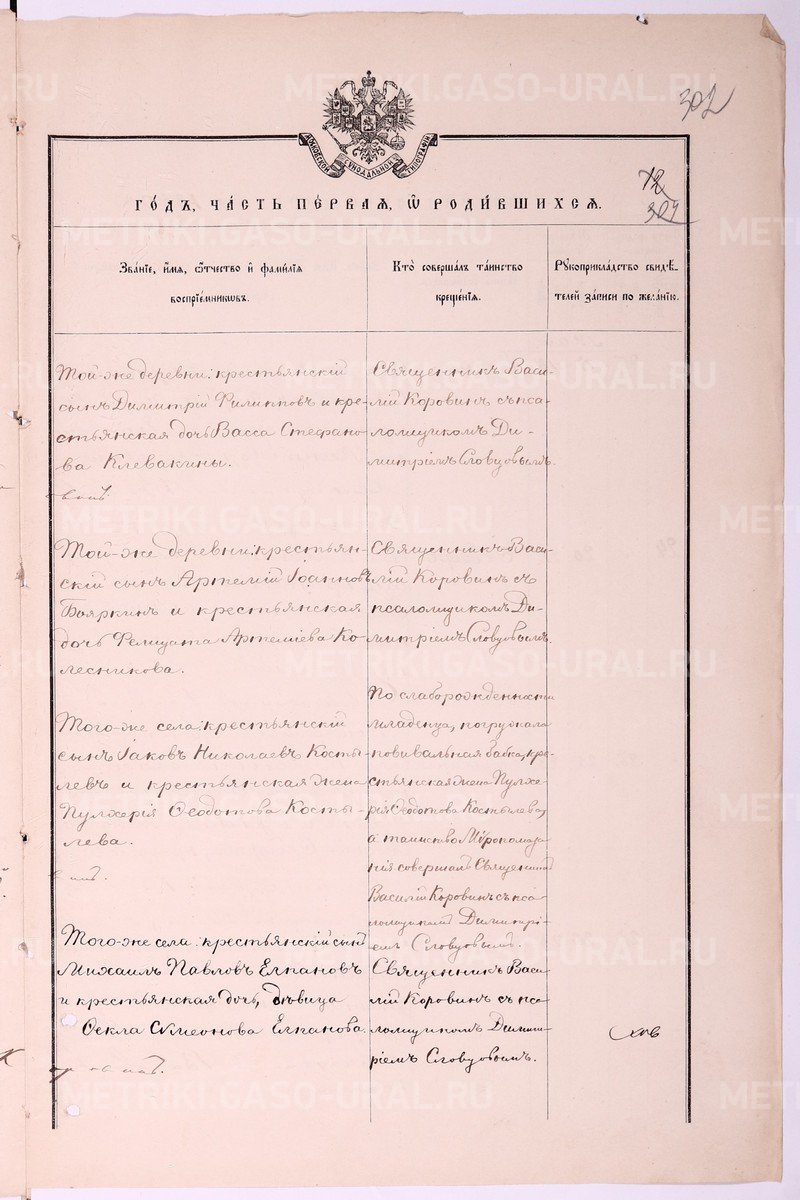 302
МОСКОВСКОЙ СѴНОДАЛЬНОЙ ТИПОГРАФІИ
72
309
ГО́ДЪ, ЧА́СТЬ ПЕ́РВАѦ, Ѽ РОДИ́ВШИХСѦ.
Зва́нїе, и҆́мѧ, ѻ҆́тчество и҆ фами́лїѧ
воспрїе́мникѡвъ.
Кто̀ соверша́лъ та́инство
креще́нїѧ.
Рꙋкоприкла́дство свидѣ́-
телей за́писи по жела́нїю.
Той-же деревни: крестьянскій
сынъ Димитрій Филипповъ и кре-
стьянская дочь Васса Стефано-
ва Клевакины.
Священникъ Васи-
лій Коровинъ съ пса-
ломщикомъ Ди-
митріемъ Словцовымъ.
Той-же деревни: крестьян-
скій сынъ Артемій Іоанновъ
Бояркинъ и крестьянская
дочь Фелицата Артеміева Ко-
лесникова.
Священникъ Васи-
лій Коровинъ съ
псаломщикомъ Ди-
митріемъ Словцовымъ.
Того-же села: крестьянскій
сынъ Іаковъ Николаевъ Косты-
левъ и крестьянская жена
Пулхерія Ѳеодотова Косты-
лева.
По слаборожденности
младенца, погружала
повивальная бабка, кре-
стьянская жена Пулхе-
рія Ѳеодотова Костылева,
а таинство Мѵропомаза-
нія совершалъ Священникъ
Василій Коровинъ съ пса-
ломщикомъ Димитрі-
емъ Словцовымъ.
Того-же села: крестьянскій сынъ
Михаилъ Павловъ Елпановъ
и крестьянская дочь, дѣвица
Ѳекла Сѵмеонова Елпанова.
Священникъ Васи-
лій Коровинъ съ пса-
ломщикомъ Димит-
ріемъ Словцовымъ.
METRIKI.GASO-URAL.RU